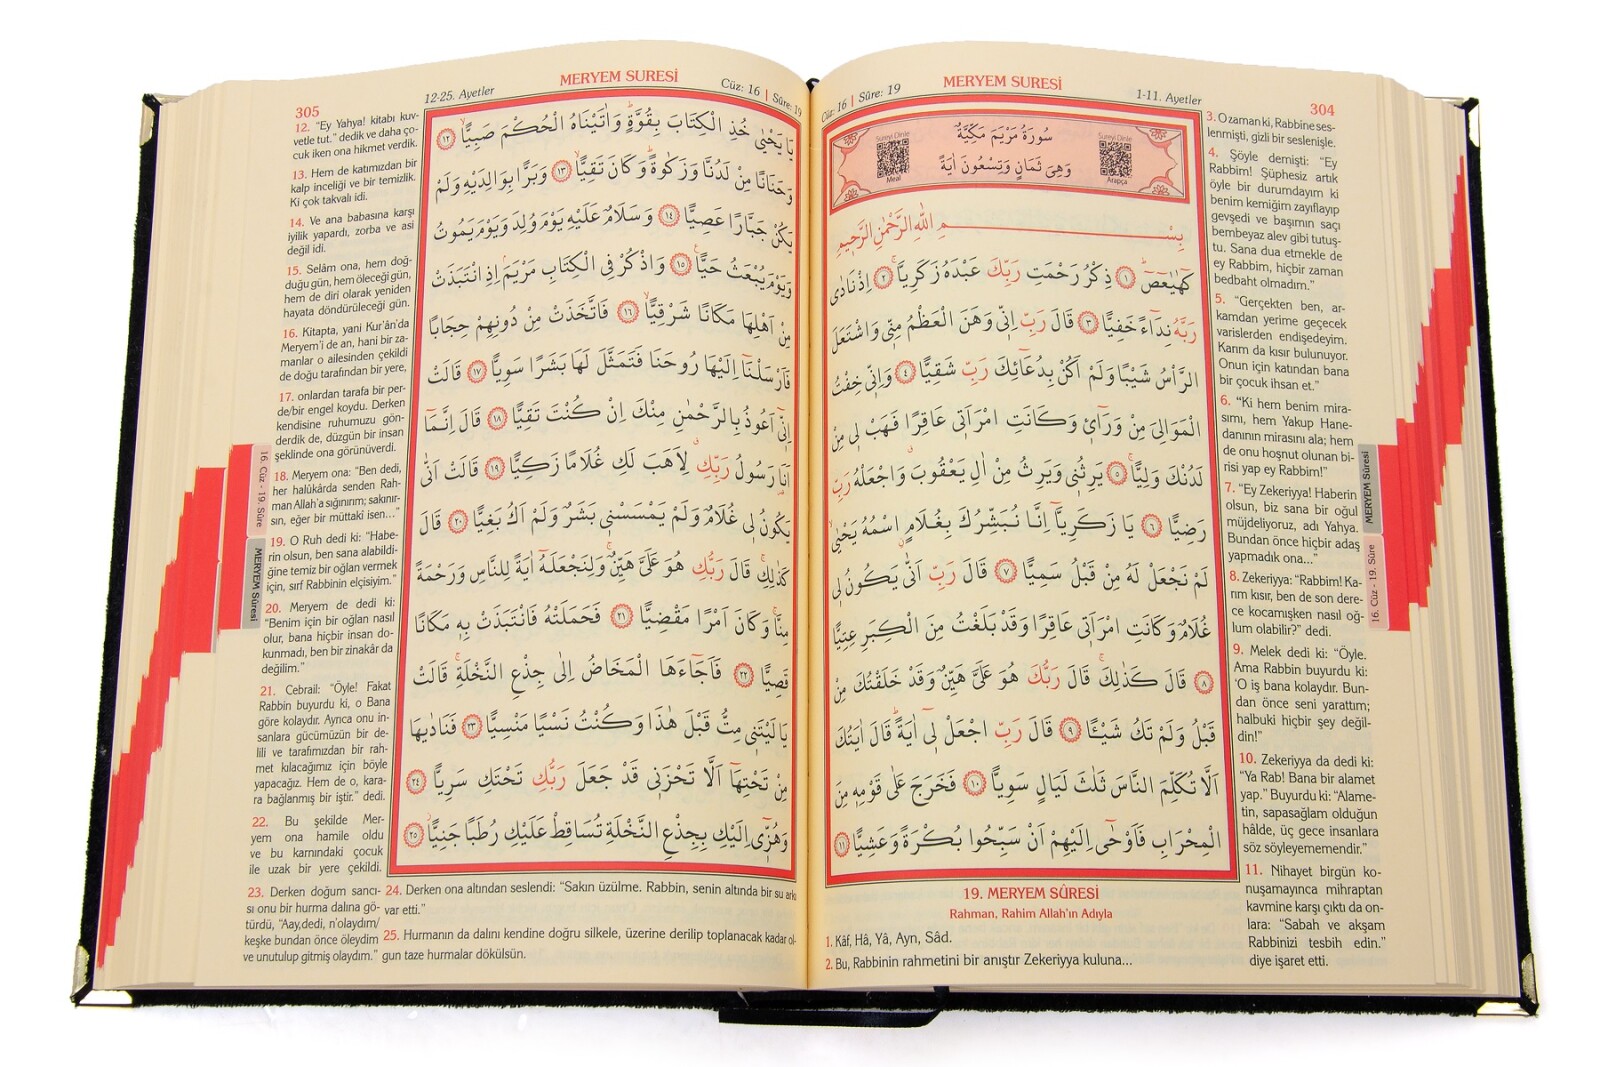 304
MERYEM SURESİ
Cüz: 16 | Sûre: 19
1-11. Ayetler
سُورَةُ مَرْيَمَ مَكِّيَّةٌ
وَهِيَ ثَمَانٍ وَتِسْعُونَ اٰيَةً
Sureyi Dinle
Meal
Sureyi Dinle
Arapça
بِسْــــــمِ اللّٰهِ الرَّحْمٰنِ الرَّحِيمِ
كٓهٰيٰعٓصٓ ﴿١﴾ ذِكْرُ رَحْمَتِ رَبِّكَ عَبْدَهُ زَكَرِيَّا ﴿٢﴾ اِذْ نَادٰى
رَبَّهُ نِدَٓاءً خَفِيًّا ﴿٣﴾ قَالَ رَبِّ اِنّ۪ي وَهَنَ الْعَظْمُ مِنّ۪ي وَاشْتَعَلَ
الرَّأْسُ شَيْبًا وَلَمْ اَكُنْ بِدُعَٓائِكَ رَبِّ شَقِيًّا ﴿٤﴾ وَاِنّ۪ي خِفْتُ
الْمَوَالِيَ مِنْ وَرَٓاء۪ي وَكَانَتِ امْرَاَت۪ي عَاقِرًا فَهَبْ ل۪ي مِنْ
لَدُنْكَ وَلِيًّا ﴿٥﴾ يَرِثُن۪ي وَيَرِثُ مِنْ اٰلِ يَعْقُوبَ وَاجْعَلْهُ رَبِّ
رَضِيًّا ﴿٦﴾ يَا زَكَرِيَّٓا اِنَّا نُبَشِّرُكَ بِغُلَامٍ اسْمُهُ يَحْيٰى
لَمْ نَجْعَلْ لَهُ مِنْ قَبْلُ سَمِيًّا ﴿٧﴾ قَالَ رَبِّ اَنّٰى يَكُونُ ل۪ي
غُلَامٌ وَكَانَتِ امْرَاَت۪ي عَاقِرًا وَقَدْ بَلَغْتُ مِنَ الْكِبَرِ عِتِيًّا
﴿٨﴾ قَالَ كَذٰلِكَ قَالَ رَبُّكَ هُوَ عَلَيَّ هَيِّنٌ وَقَدْ خَلَقْتُكَ مِنْ
قَبْلُ وَلَمْ تَكُ شَيْـًٔا ﴿٩﴾ قَالَ رَبِّ اجْعَلْ ل۪ٓي اٰيَةً قَالَ اٰيَتُكَ
اَلَّا تُكَلِّمَ النَّاسَ ثَلٰثَ لَيَالٍ سَوِيًّا ﴿١٠﴾ فَخَرَجَ عَلٰى قَوْمِه۪ مِنَ
الْمِحْرَابِ فَاَوْحٰٓى اِلَيْهِمْ اَنْ سَبِّحُوا بُكْرَةً وَعَشِيًّا ﴿١١﴾
19. MERYEM SÛRESİ
Rahman, Rahim Allah'ın Adıyla
1. Kâf, Hâ, Yâ, Ayn, Sâd.
2. Bu, Rabbinin rahmetini bir anıştır Zekeriyya kuluna...
3. O zaman ki, Rabbine ses-
lenmişti, gizli bir seslenişle.
4. Şöyle demişti: “Ey
Rabbim! Şüphesiz artık
öyle bir durumdayım ki
benim kemiğim zayıflayıp
gevşedi ve başımın saçı
bembeyaz alev gibi tutuş-
tu. Sana dua etmekle de
ey Rabbim, hiçbir zaman
bedbaht olmadım.”
5. “Gerçekten ben, ar-
kamdan yerime geçecek
varislerden endişedeyim.
Karım da kısır bulunuyor.
Onun için katından bana
bir çocuk ihsan et.”
6. “Ki hem benim mira-
sım, hem Yakup Hane-
danının mirasını ala; hem
de onu hoşnut olunan bi-
risi yap ey Rabbim!”
7. “Ey Zekeriyya! Haberin
olsun, biz sana bir oğul
müjdeliyoruz, adı Yahya.
Bundan önce hiçbir adaş
yapmadık ona...”
8. Zekeriyya: “Rabbim! Ka-
rım kısır, ben de son dere-
ce kocamışken nasıl oğ-
lum olabilir?” dedi.
9. Melek dedi ki: “Öyle.
Ama Rabbin buyurdu ki:
‘O iş bana kolaydır. Bun-
dan önce seni yarattım;
halbuki hiçbir şey değil-
din!”
10. Zekeriyya da dedi ki:
“Ya Rab! Bana bir alamet
yap.” Buyurdu ki: “Alame-
tin, sapasağlam olduğun
hâlde, üç gece insanlara
söz söyleyememendir.”
11. Nihayet birgün ko-
nuşamayınca mihraptan
kavmine karşı çıktı da on-
lara: “Sabah ve akşam
Rabbinizi tesbih edin.”
diye işaret etti.
MERYEM Sûresi
16. Cüz - 19. Sûre
305
12-25. Ayetler
MERYEM SURESİ
Cüz: 16 | Sûre: 19
يَا يَحْيٰى خُذِ الْكِتَابَ بِقُوَّةٍ وَاٰتَيْنَاهُ الْحُكْمَ صَبِيًّا ﴿١٢﴾
وَحَنَانًا مِنْ لَدُنَّا وَزَكٰوةً وَكَانَ تَقِيًّا ﴿١٣﴾ وَبَرًّا بِوَالِدَيْهِ وَلَمْ
يَكُنْ جَبَّارًا عَصِيًّا ﴿١٤﴾ وَسَلَامٌ عَلَيْهِ يَوْمَ وُلِدَ وَيَوْمَ يَمُوتُ
وَيَوْمَ يُبْعَثُ حَيًّا ﴿١٥﴾ وَاذْكُرْ فِي الْكِتَابِ مَرْيَمَ اِذِ انْتَبَذَتْ
مِنْ اَهْلِهَا مَكَانًا شَرْقِيًّا ﴿١٦﴾ فَاتَّخَذَتْ مِنْ دُونِهِمْ حِجَابًا
فَاَرْسَلْنَٓا اِلَيْهَا رُوحَنَا فَتَمَثَّلَ لَهَا بَشَرًا سَوِيًّا ﴿١٧﴾ قَالَتْ
اِنّ۪ٓي اَعُوذُ بِالرَّحْمٰنِ مِنْكَ اِنْ كُنْتَ تَقِيًّا ﴿١٨﴾ قَالَ اِنَّمَٓا
اَنَا رَسُولُ رَبِّكِ لِاَهَبَ لَكِ غُلَامًا زَكِيًّا ﴿١٩﴾ قَالَتْ اَنّٰى
يَكُونُ ل۪ي غُلَامٌ وَلَمْ يَمْسَسْن۪ي بَشَرٌ وَلَمْ اَكُ بَغِيًّا ﴿٢٠﴾ قَالَ
كَذٰلِكِ قَالَ رَبُّكِ هُوَ عَلَيَّ هَيِّنٌ وَلِنَجْعَلَهُٓ اٰيَةً لِلنَّاسِ وَرَحْمَةً
مِنَّا وَكَانَ اَمْرًا مَقْضِيًّا ﴿٢١﴾ فَحَمَلَتْهُ فَانْتَبَذَتْ بِه۪ مَكَانًا
قَصِيًّا ﴿٢٢﴾ فَاَجَٓاءَهَا الْمَخَاضُ اِلٰى جِذْعِ النَّخْلَةِ قَالَتْ
يَا لَيْتَن۪ي مِتُّ قَبْلَ هٰذَا وَكُنْتُ نَسْيًا مَنْسِيًّا ﴿٢٣﴾ فَنَادٰيهَا
مِنْ تَحْتِهَٓا اَلَّا تَحْزَن۪ي قَدْ جَعَلَ رَبُّكِ تَحْتَكِ سَرِيًّا ﴿٢٤﴾
وَهُزّ۪ٓي اِلَيْكِ بِجِذْعِ النَّخْلَةِ تُسَاقِطْ عَلَيْكِ رُطَبًا جَنِيًّا ﴿٢٥﴾
12. “Ey Yahya! kitabı kuv-
vetle tut.” dedik ve daha ço-
cuk iken ona hikmet verdik.
13. Hem de katımızdan bir
kalp inceliği ve bir temizlik.
Ki çok takvalı idi.
14. Ve ana babasına karşı
iyilik yapardı, zorba ve asi
değil idi.
15. Selâm ona, hem doğ-
duğu gün, hem öleceği gün,
hem de diri olarak yeniden
hayata döndürüleceği gün.
16. Kitapta, yani Kur'ân'da
Meryem'i de an, hani bir za-
manlar o ailesinden çekildi
de doğu tarafından bir yere,
17. onlardan tarafa bir per-
de/bir engel koydu. Derken
kendisine ruhumuzu gön-
derdik de, düzgün bir insan
şeklinde ona görünüverdi.
18. Meryem ona: “Ben dedi,
her halûkârda senden Rah-
man Allah'a sığınırım; sakınır-
sın, eğer bir müttaki isen...”
19. O Ruh dedi ki: “Habe-
rin olsun, ben sana alabildi-
ğine temiz bir oğlan vermek
için, sırf Rabbinin elçisiyim.”
20. Meryem de dedi ki:
“Benim için bir oğlan nasıl
olur, bana hiçbir insan do-
kunmadı, ben bir zinakâr da
değilim.”
21. Cebrail: “Öyle! Fakat
Rabbin buyurdu ki, o Bana
göre kolaydır. Ayrıca onu in-
sanlara gücümüzün bir de-
lili ve tarafımızdan bir rah-
met kılacağımız için böyle
yapacağız. Hem de o, kara-
ra bağlanmış bir iştir.” dedi.
22. Bu şekilde Mer-
yem ona hamile oldu
ve bu karnındaki çocuk
ile uzak bir yere çekildi.
23. Derken doğum sancı-
sı onu bir hurma dalına gö-
türdü, “Aay,dedi, n'olaydım/
keşke bundan önce öleydim
ve unutulup gitmiş olaydım.”
24. Derken ona altından seslendi: “Sakın üzülme. Rabbin, senin altında bir su arkı
var etti.”
25. Hurmanın da dalını kendine doğru silkele, üzerine derilip toplanacak kadar ol-
gun taze hurmalar dökülsün.
16. Cüz - 19. Sûre
MERYEM Sûresi